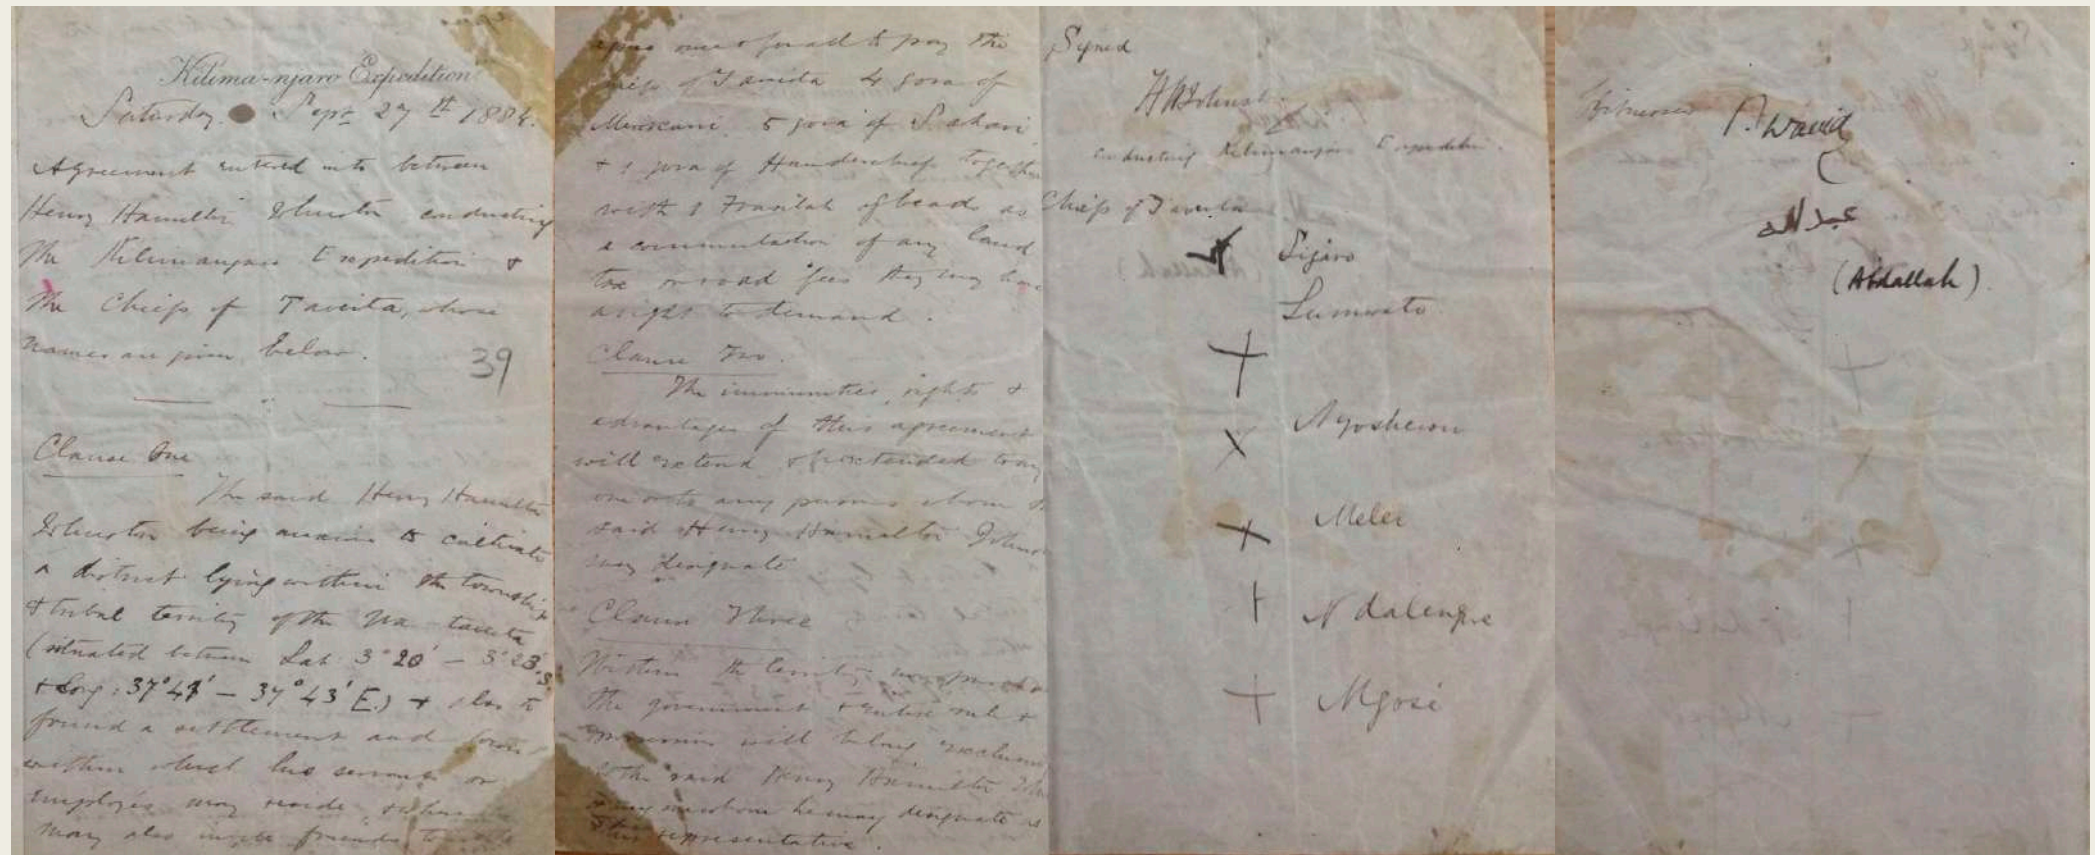 Kilima-njaro Expedition
Saturday Sept 27th 1884.
Agreement entered into between
Henry Hamilton Johnston conducting
the Kilimanjaro Expedition &
the Chiefs of Taveita, whose
names are given below.
39
Clause One
The said Henry Hamilton
Johnston being anxious to cultivate
a district lying within the township
& tribal territory of the Wa-taveita
(situated between Lat: 3°20' – 3°23' S.
& Long: 37°41' – 37°43' E.) & also to
found a settlement and town
within which his servants or
employés may reside, & where
may also invite friends to
once & for all to pay the
Chiefs of Taveita 4 gora of
Merikani, 5 gora of Sahari
& 1 gora of Handerchiefs together
with 1 Frasilah of beads as
a commutation of any land
tax or road fees they may have
a right to demand.
Clause Two.
The immunities, rights &
advantages of this agreement
will extend & be extended to any
one or to any persons whom the
said Henry Hamilton Johnston
may designate
Clause Three
Within the territory
the government & entire rule &
will belong exclusively
to the said Henry Hamilton John
he may designate as
his representative.
Signed
H H Johnston
Conducting Kilimanjaro Expedition.
Chiefs of Taveita
Sijaro
Lumwato
Meler
Ndalenge
Mgosi
Witnesses
David
عبدالله
(Abdallah).